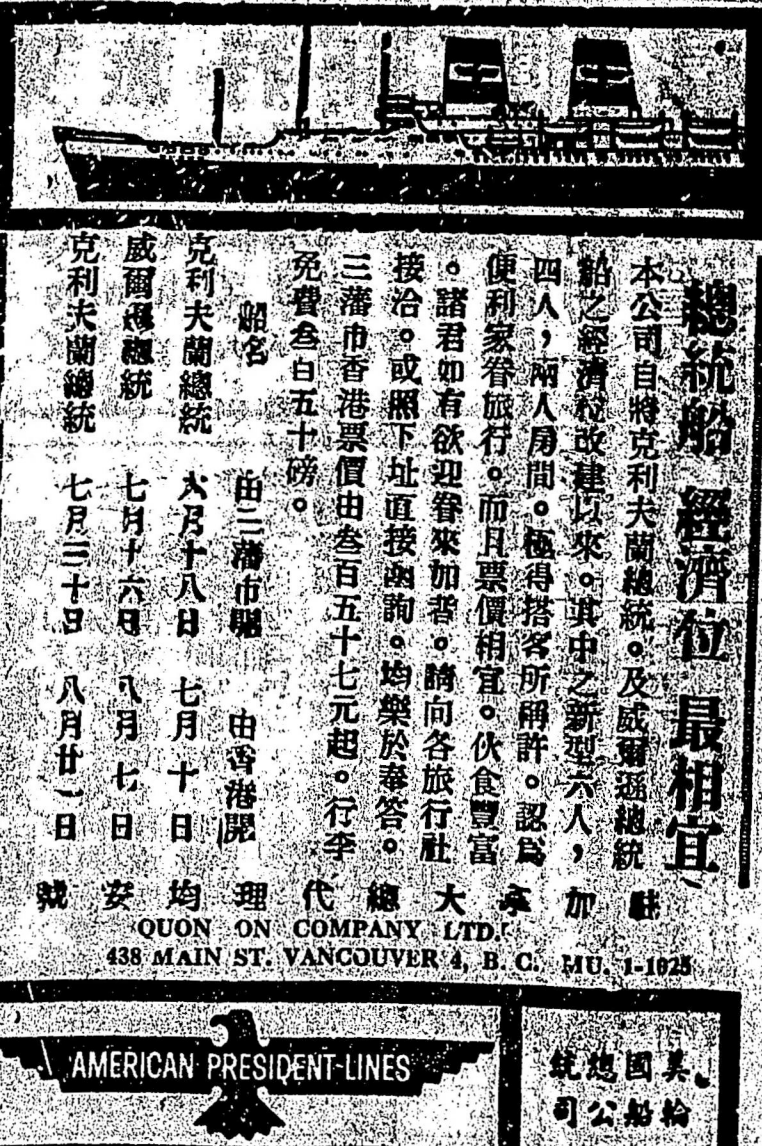 總統船 經濟位 最相宜
本公司自將克利夫蘭總統。及威爾遜總統
船之經濟位改建以來。其中之新型六人,
四人,兩人房間。極得搭客所稱許。認爲
便利家眷旅行。而且票價相宜。伙食豐富
。諸君如有欲迎眷來加者。請向各旅行社
接洽。或照下址直接函詢。均樂於奉答。
三藩市香港票價由叁百五十七元起。行李
免費叁白五十磅。
船名 由三藩市開 由香港開
克利夫蘭總統 六月十八日 七月十日
威爾遜總統 七月十六日 八月七日
克利夫蘭總統 七月三十日 八月廿一日
駐加拿大總代理均安號
QUON ON COMPANY LTD.
438 MAIN ST. VANCOUVER 4, B. C. MU. 1-1025
AMERICAN PRESIDENT LINES
美國總統
輪船公司